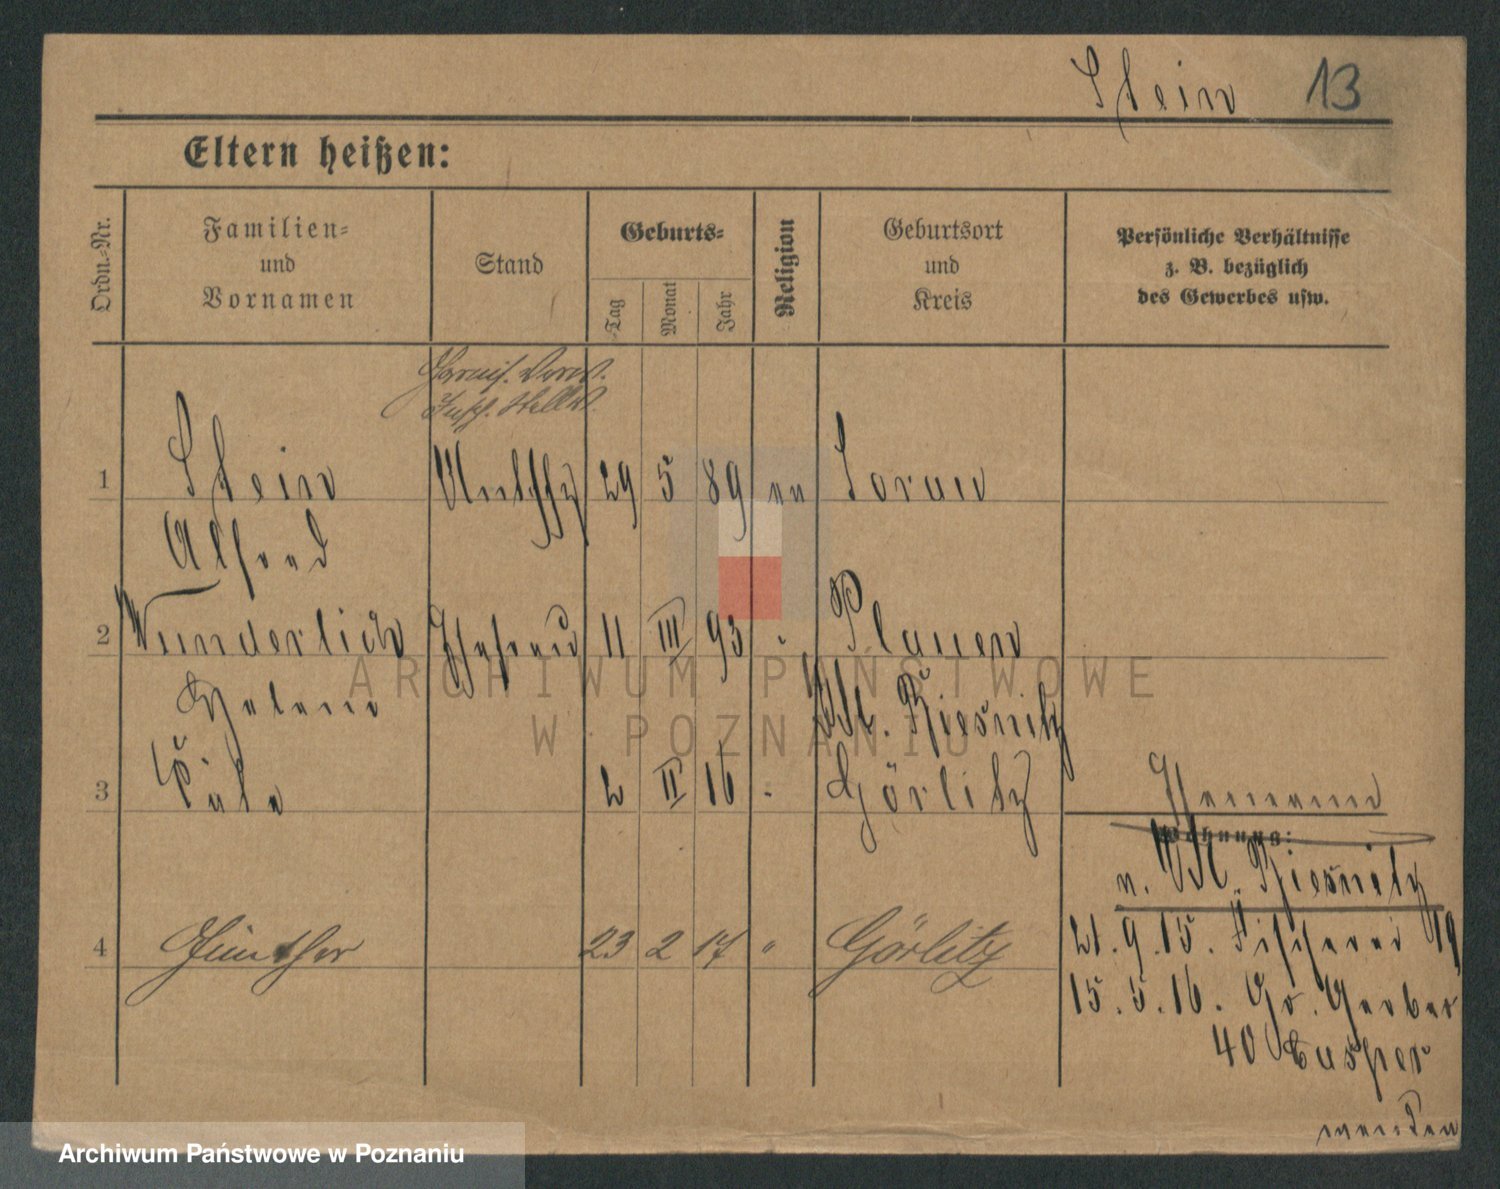 Stein 13
Eltern heißen:
Ordn.-Nr.
Familien-
und
Vornamen
Stand
Geburts-
Tag
Monat
Jahr
Religion
Geburtsort
und
Kreis
Persönliche Verhältnisse
z. B. bezüglich
des Gewerbes usw.
Garnis. Verw.
Insp. Stellv.
1 Stein 29 5 89 ev Sorau
Alfred
2 Wunderlich Ehefrau 11 III 93 " Plauen
Helene
3 2 II 16 " Görlitz
Wohnung:
4 Günther 23 2 17 " Görlitz
21.9.15. Fischerei 19
15.5.16. Gr. Gerber
40 Casper
wenden
ARCHIWUM PAŃSTWOWE
W POZNANIU
Archiwum Państwowe w Poznaniu